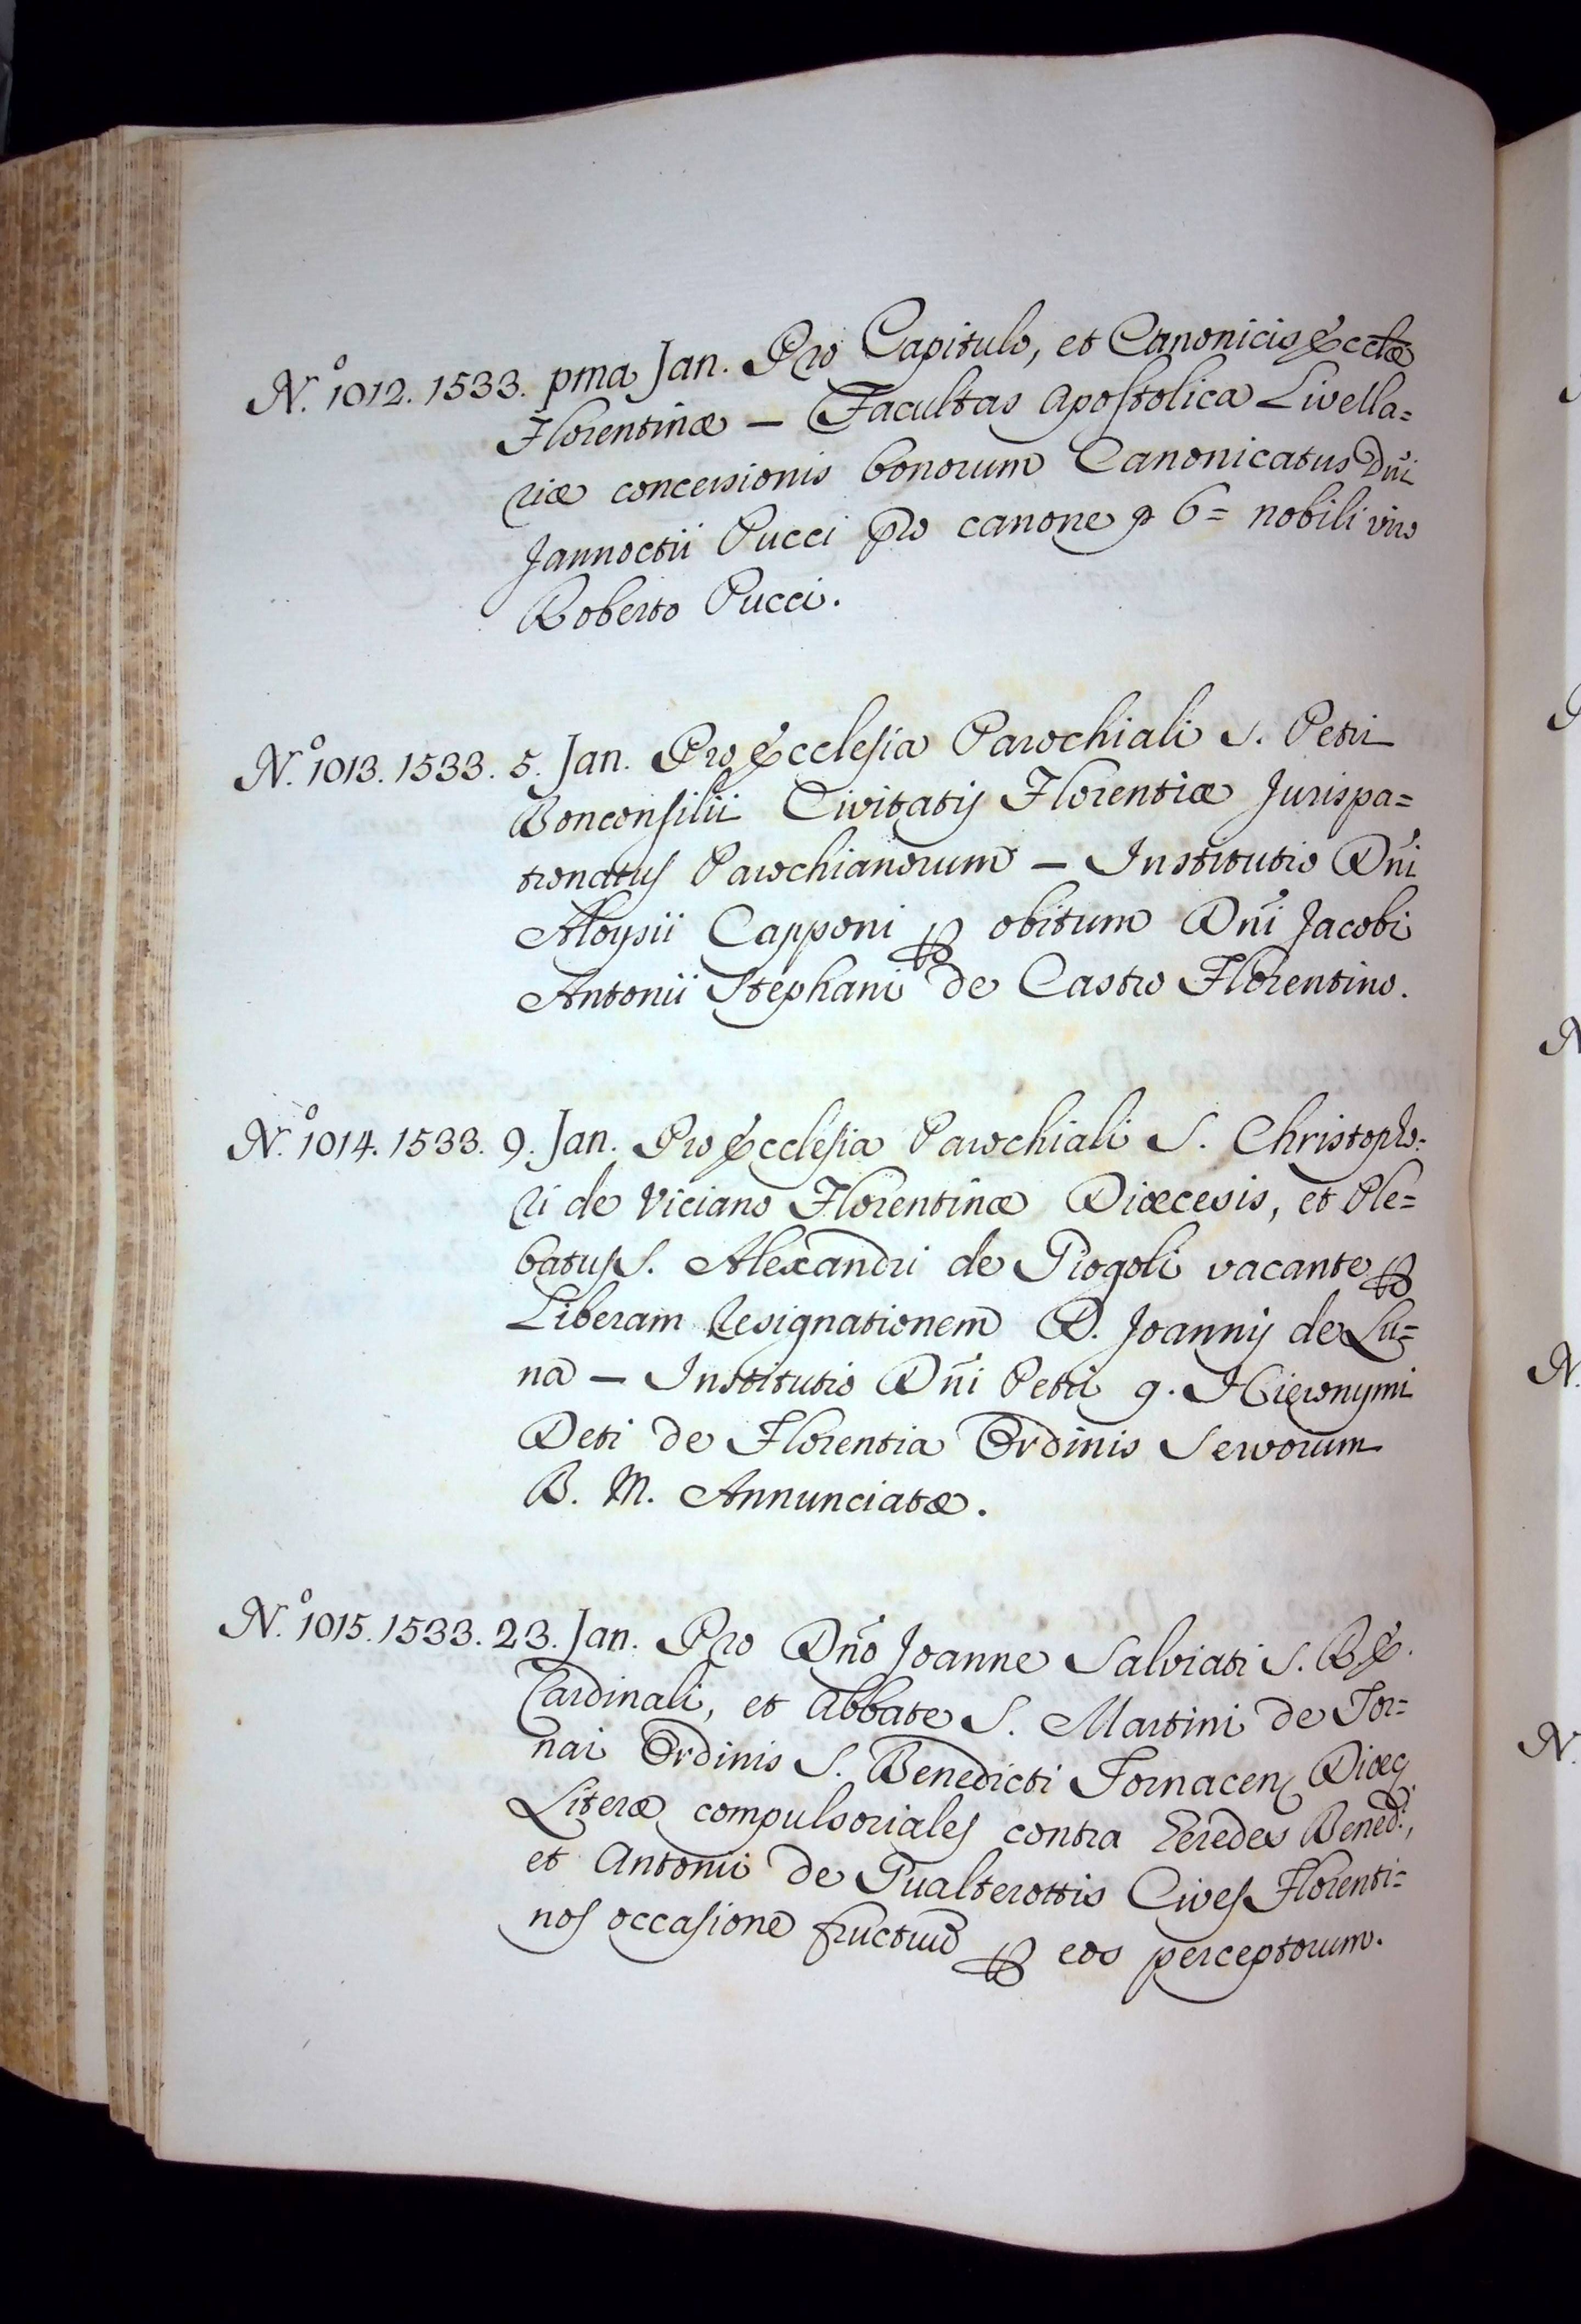 N.º 1012. 1533. pma Jan. Pro Capitulo, et Canonicis Eccłæ
Florentinæ — Facultas Apostolica Livella=
riæ concessionis bonorum Canonicatus Dñi
Jannoctii Pucci pro canone 6= nobili viro
Roberto Pucci.
N.º 1013. 1533. 5. Jan. Pro Ecclesia Parochiali S. Petri
Bonconsilii Civitatis Florentiæ Jurispa=
tronatus Parochianorum — Institutio Dñi
Aloysii Capponi ꝑ obitum Dñi Jacobi
Antonii Stephani de Castro Florentino.
N.º 1014. 1533. 9. Jan. Pro Ecclesia Parochiali S. Christopho=
ri de Viciano Florentinæ Diœcesis, et Ple=
batus S. Alexandri de Giogoli vacante ꝑ
Liberam Resignationem D. Joannis de Lu=
na — Institutio Dñi Petri q. Hieronymi
Deti de Florentia Ordinis Servorum
B. M. Annunciatæ.
N.º 1015. 1533. 23. Jan. Pro Dño Joanne Salviati S. R. E.
Cardinali, et Abbate S. Martini de Tor=
nai Ordinis S. Benedicti Tornacen Diœc
Literæ compulsoriales contra Eredes Bened.i,
et Antonii de Gualterottis Cives Florenti=
nos occasione fructuũ ꝑ eos perceptorum.